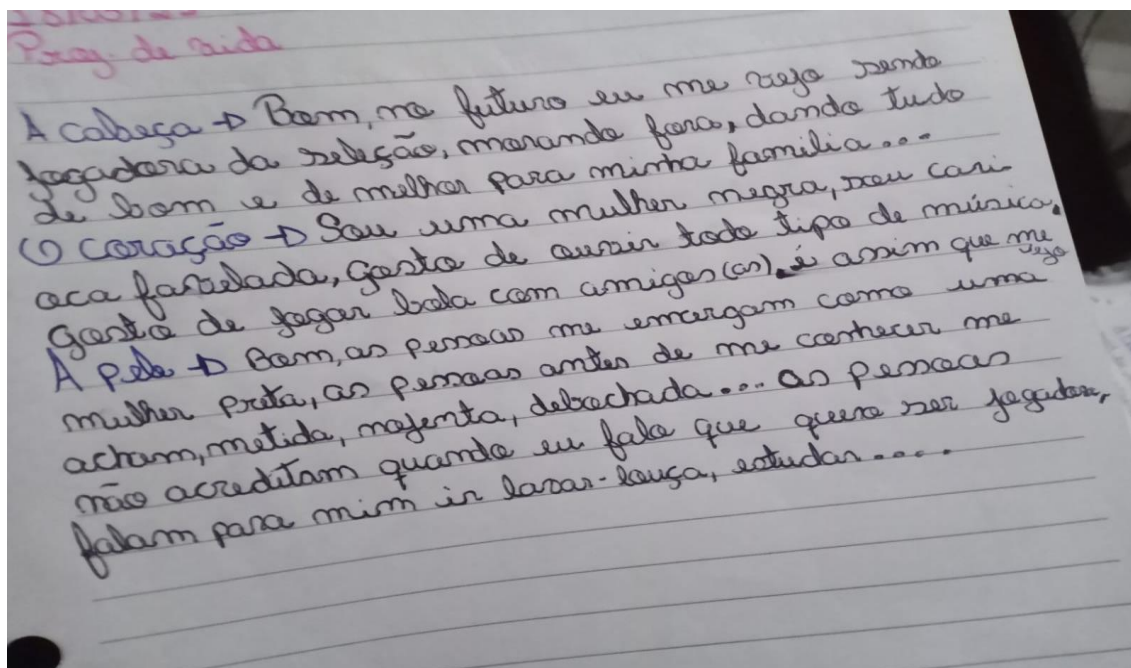 Proj. de vida
A cabeça → Bom, no futuro eu me vejo sendo
jogadora da seleção, morando fora, dando tudo
de bom e de melhor para minha familia...
O coração → Sou uma mulher negra, sou cari-
oca favelada, gosto de ouvir todo tipo de música,
gosto de jogar bola com amigos(as). é assim que me vejo
A pele → Bom, as pessoas me enxergam como uma
mulher preta, as pessoas antes de me conhecer me
acham, metida, nojenta, debochada... as pessoas
não acreditam quando eu falo que quero ser jogadora,
falam para mim ir lavar-louça, estudar....